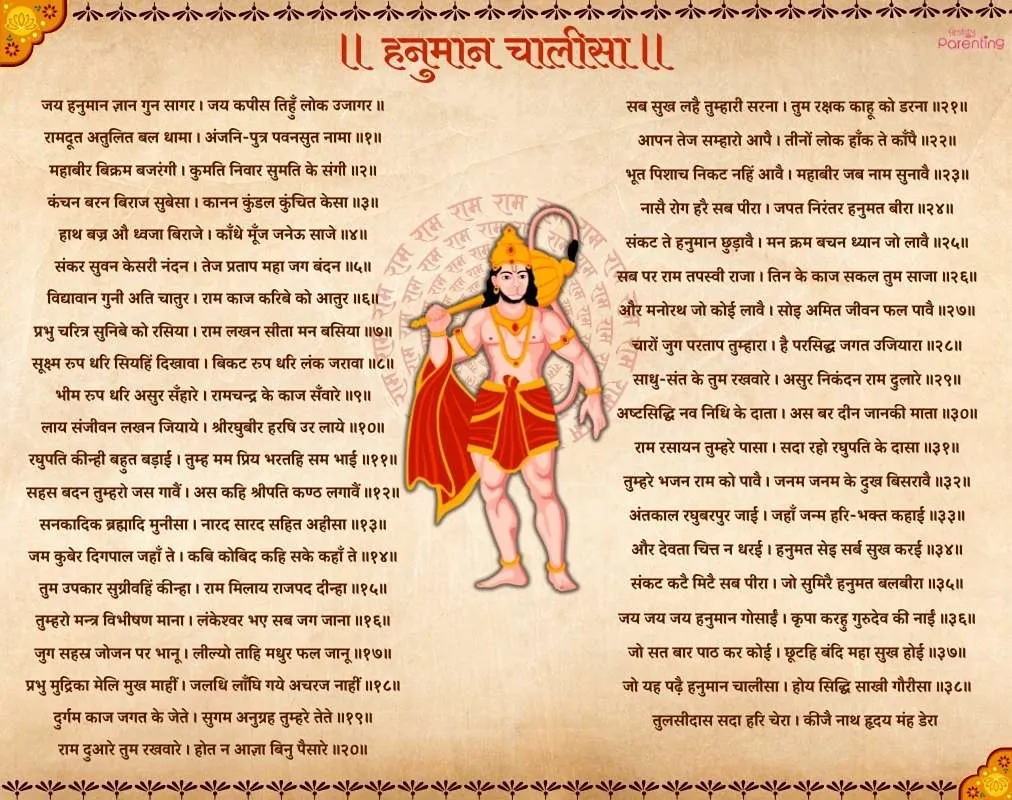 ॥ हनुमान चालीसा ॥
firstcry
Parenting
जय हनुमान ज्ञान गुन सागर । जय कपीस तिहुँ लोक उजागर ॥
रामदूत अतुलित बल धामा । अंजनि-पुत्र पवनसुत नामा ॥१॥
महाबीर बिक्रम बजरंगी । कुमति निवार सुमति के संगी ॥२॥
कंचन बरन बिराज सुबेसा । कानन कुंडल कुंचित केसा ॥३॥
हाथ बज्र औ ध्वजा बिराजे । काँधे मूँज जनेऊ साजे ॥४॥
संकर सुवन केसरी नंदन । तेज प्रताप महा जग बंदन ॥५॥
विद्यावान गुनी अति चातुर । राम काज करिबे को आतुर ॥६॥
प्रभु चरित्र सुनिबे को रसिया । राम लखन सीता मन बसिया ॥७॥
सूक्ष्म रुप धरि सियहिं दिखावा । बिकट रुप धरि लंक जरावा ॥८॥
भीम रुप धरि असुर सँहारे । रामचन्द्र के काज सँवारे ॥९॥
लाय संजीवन लखन जियाये । श्रीरघुबीर हरषि उर लाये ॥१०॥
रघुपति कीन्ही बहुत बड़ाई । तुम्ह मम प्रिय भरतहि सम भाई ॥११॥
सहस बदन तुम्हरो जस गावैं । अस कहि श्रीपति कण्ठ लगावैं ॥१२॥
सनकादिक ब्रह्मादि मुनीसा । नारद सारद सहित अहीसा ॥१३॥
जम कुबेर दिगपाल जहाँ ते । कबि कोबिद कहि सके कहाँ ते ॥१४॥
तुम उपकार सुग्रीवहिं कीन्हा । राम मिलाय राजपद दीन्हा ॥१५॥
तुम्हरो मन्त्र विभीषण माना । लंकेश्वर भए सब जग जाना ॥१६॥
जुग सहस्र जोजन पर भानू । लील्यो ताहि मधुर फल जानू ॥१७॥
प्रभु मुद्रिका मेलि मुख माहीं । जलधि लाँघि गये अचरज नाहीं ॥१८॥
दुर्गम काज जगत के जेते । सुगम अनुग्रह तुम्हरे तेते ॥१९॥
राम दुआरे तुम रखवारे । होत न आज्ञा बिनु पैसारे ॥२०॥
सब सुख लहै तुम्हारी सरना । तुम रक्षक काहू को डरना ॥२१॥
आपन तेज सम्हारो आपै । तीनों लोक हाँक ते काँपै ॥२२॥
भूत पिशाच निकट नहिं आवै । महाबीर जब नाम सुनावै ॥२३॥
नासै रोग हरै सब पीरा । जपत निरंतर हनुमत बीरा ॥२४॥
संकट ते हनुमान छुड़ावै । मन क्रम बचन ध्यान जो लावै ॥२५॥
सब पर राम तपस्वी राजा । तिन के काज सकल तुम साजा ॥२६॥
और मनोरथ जो कोई लावै । सोइ अमित जीवन फल पावै ॥२७॥
चारों जुग परताप तुम्हारा । है परसिद्ध जगत उजियारा ॥२८॥
साधु-संत के तुम रखवारे । असुर निकंदन राम दुलारे ॥२९॥
अष्टसिद्धि नव निधि के दाता । अस बर दीन जानकी माता ॥३०॥
राम रसायन तुम्हरे पासा । सदा रहो रघुपति के दासा ॥३१॥
तुम्हरे भजन राम को पावै । जनम जनम के दुख बिसरावै ॥३२॥
अंतकाल रघुबरपुर जाई । जहाँ जन्म हरि-भक्त कहाई ॥३३॥
और देवता चित्त न धरई । हनुमत सेइ सर्ब सुख करई ॥३४॥
संकट कटै मिटै सब पीरा । जो सुमिरै हनुमत बलबीरा ॥३५॥
जय जय जय हनुमान गोसाईं । कृपा करहु गुरुदेव की नाईं ॥३६॥
जो सत बार पाठ कर कोई । छूटहि बंदि महा सुख होई ॥३७॥
जो यह पढ़ै हनुमान चालीसा । होय सिद्धि साखी गौरीसा ॥३८॥
तुलसीदास सदा हरि चेरा । कीजै नाथ हृदय मंह डेरा
राम राम राम राम राम राम राम